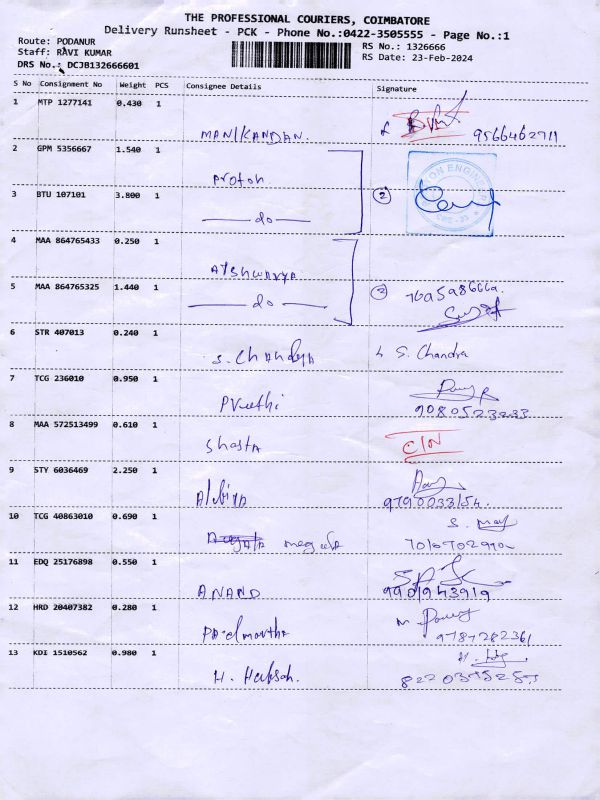 THE PROFESSIONAL COURIERS, COIMBATORE
Delivery Runsheet - PCK - Phone No.:0422-3505555 - Page No.:1
Route: PODANUR
Staff: RAVI KUMAR
DRS No.: DCJB132666601
RS No.: 1326666
RS Date: 23-Feb-2024
S No Consignment No Weight PCS Consignee Details Signature
1 MTP 1277141 0.430 1
MANIKANDAN. 9566462711
2 GPM 5356667 1.540 1
Proton
3 BTU 107101 3.800 1 2
do
4 MAA 864765433 0.250 1
AIshwarya
5 MAA 864765325 1.440 1 2
do
6 STR 407013 0.240 1
S. Chandra S. Chandra
7 TCG 236010 0.950 1
Preethi 9080523233
8 MAA 572513499 0.610 1
Shasta C/N
9 STY 6036469 2.250 1
9790033154.
10 TCG 40863010 0.690 1
megala
11 EDQ 25176898 0.550 1
ANAND 9901943919
12 HRD 20407382 0.280 1
9787282361
13 KDI 1510562 0.980 1
H.